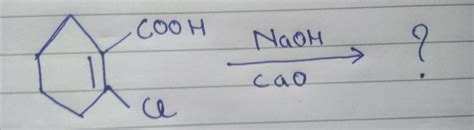 COOH
NaOH
CaO
?
Cl